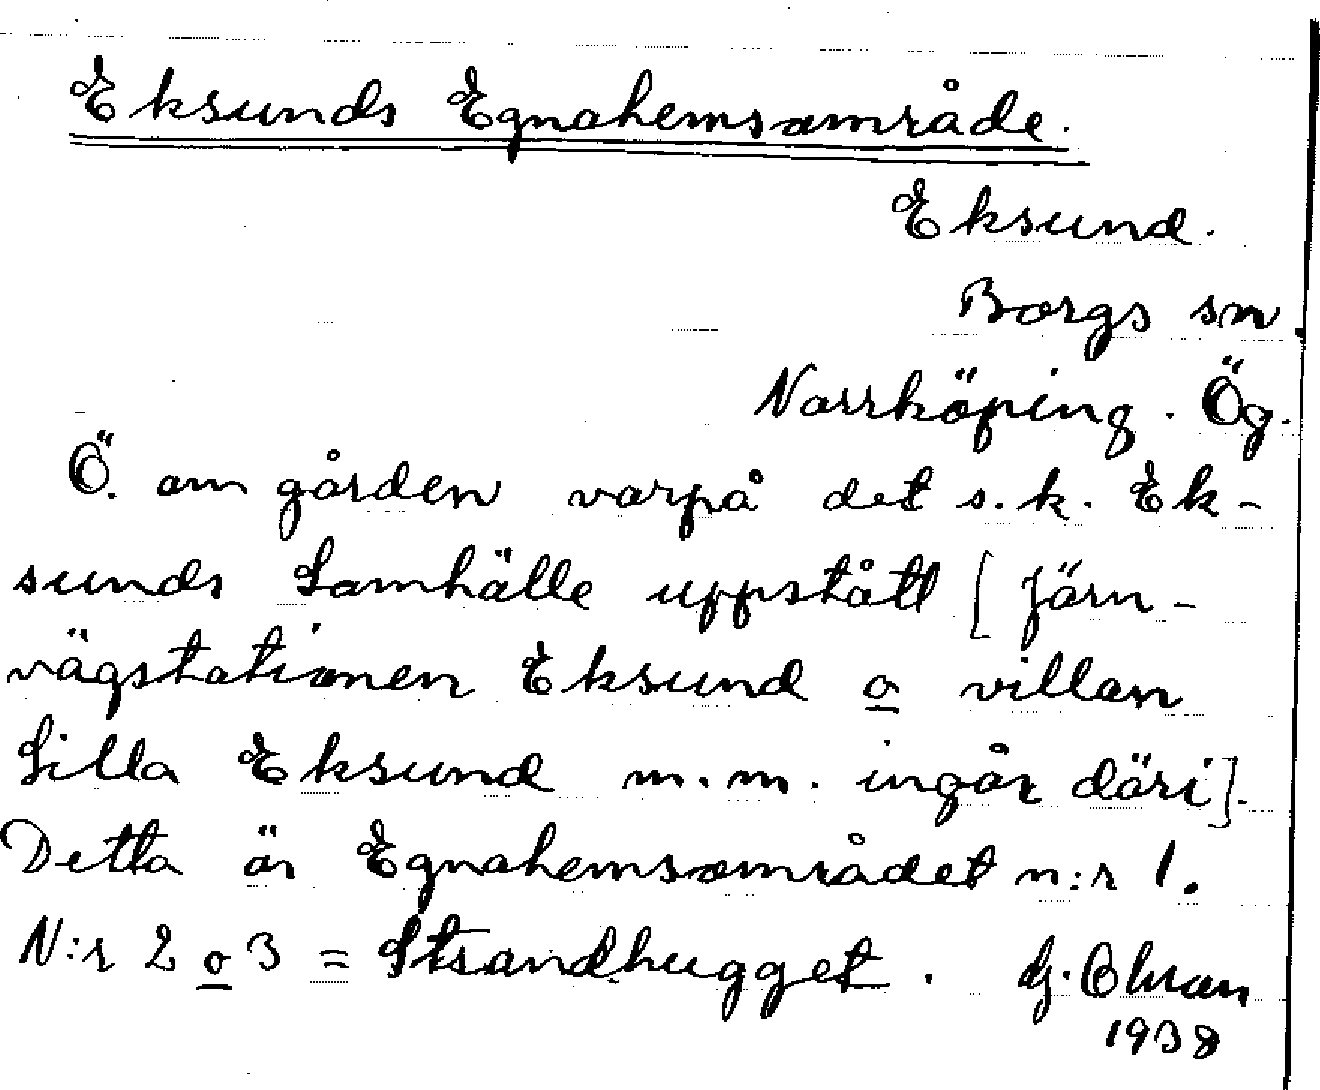 Eksunds Egnahemsområde.
Eksund.
Borgs sn.
Norrköping. Ög.
Ö. om gården varpå det s.k. Ek-
sunds Samhälle uppstått [Järn-
vägstationen Eksund o villan
Lilla Eksund m.m. ingår däri].
Detta är Egnahemsområdet n:r 1.
N:r 2 o 3 = Strandhugget.
1938